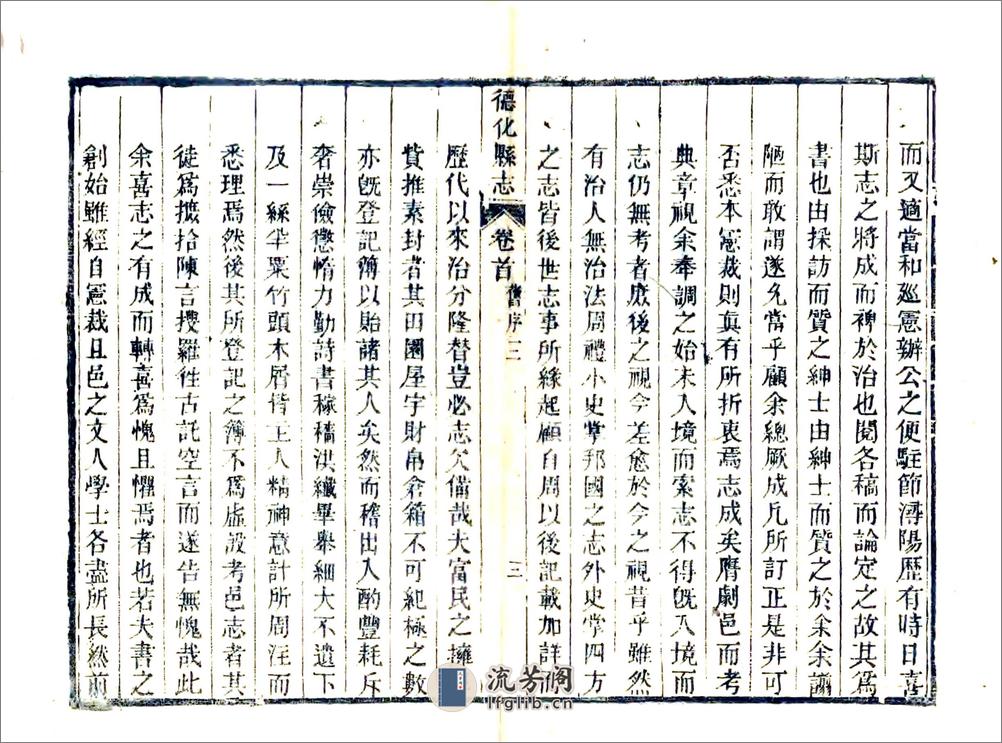 而又適當和廵憲辦公之便駐節潯陽歷有時日喜
斯志之將成而裨於治也閱各稿而論定之故其爲
書也由採訪而質之紳士由紳士而質之於余余謭
陋而敢謂遂允當乎顧余總厥成凡所訂正是非可
否悉本憲裁則眞有所折衷焉志成矣膺劇邑而考
典章視余奉調之始未入境而索志不得旣入境而
志仍無考者庶後之視今差愈於今之視昔乎雖然
有治人無治法周禮小史掌邦國之志外史掌四方
之志皆後世志事所緣起顧自周以後記載加詳而
德化縣志 卷首 舊序三 三
歷代以來治分隆替豈必志欠備哉夫富民之擁
貲推素封者其田園屋宇財帛倉箱不可紀極之數
亦旣登記簿以貽諸其人矣然而稽出入酌豐耗斥
奢崇儉懲惰力勤詩書稼穡洪纖畢舉細大不遺下
及一絲半粟竹頭木屑皆主人精神意計所周注而
悉理焉然後其所登記之簿不爲虛設考邑志者其
徒爲摭拾陳言搜羅徃古託空言而遂告無愧哉此
余喜志之有成而轉喜爲愧且懼焉者也若夫書之
創始雖經自憲裁且邑之文人學士各盡所長然前
流芳阁
lfglib.cn